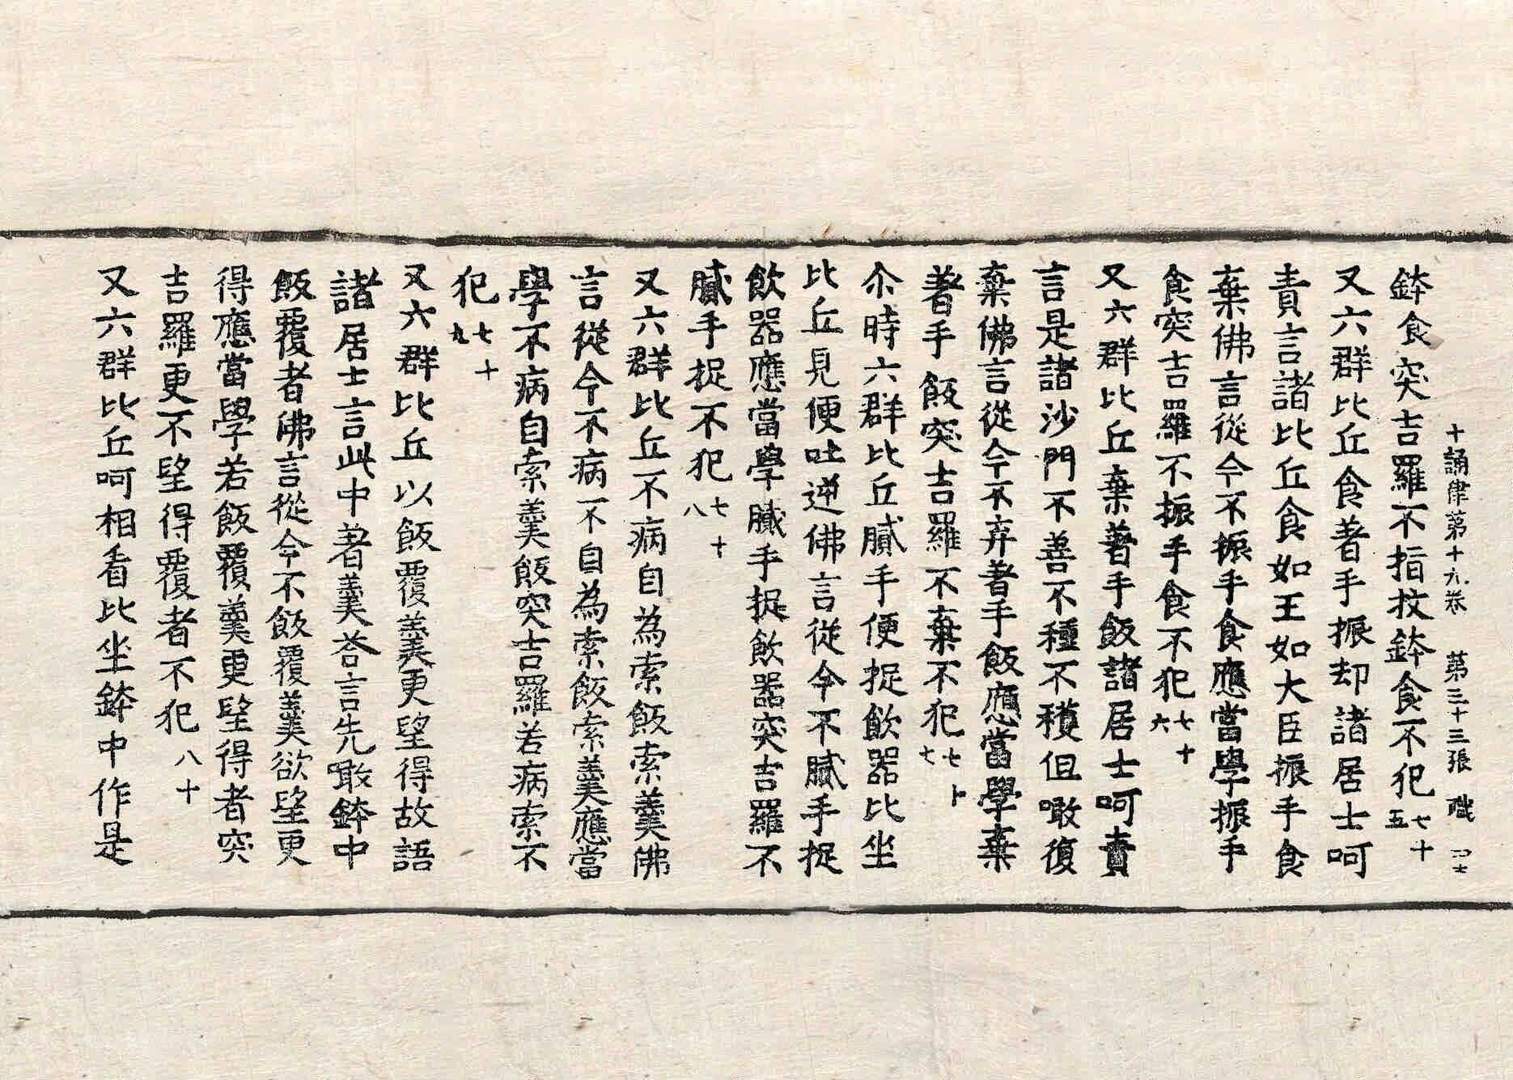 十誦律第十九卷 第三十三張 職
鉢食突吉羅不指抆鉢食不犯七十五
又六群比丘食著手振却諸居士呵
責言諸比丘食如王如大臣振手食
棄佛言從今不振手食應當學振手
食突吉羅不振手食不犯七十六
又六群比丘棄著手飯諸居士呵責
言是諸沙門不善不種不穫但噉復
棄佛言從今不弃著手飯應當學棄
著手飯突吉羅不棄不犯七十七
尒時六群比丘膩手便捉飲器比坐
比丘見便吐逆佛言從今不膩手捉
飲器應當學膩手捉飲器突吉羅不
膩手捉不犯七十八
又六群比丘不病自為索飯索羹佛
言從今不病不自為索飯索羹應當
學不病自索羹飯突吉羅若病索不
犯七十九
又六群比丘以飯覆羹更望得故語
諸居士言此中著羹荅言先噉鉢中
飯覆者佛言從今不飯覆羹欲望更
得應當學若飯覆羹更望得者突
吉羅更不望得覆者不犯八十
又六群比丘呵相看比坐鉢中作是